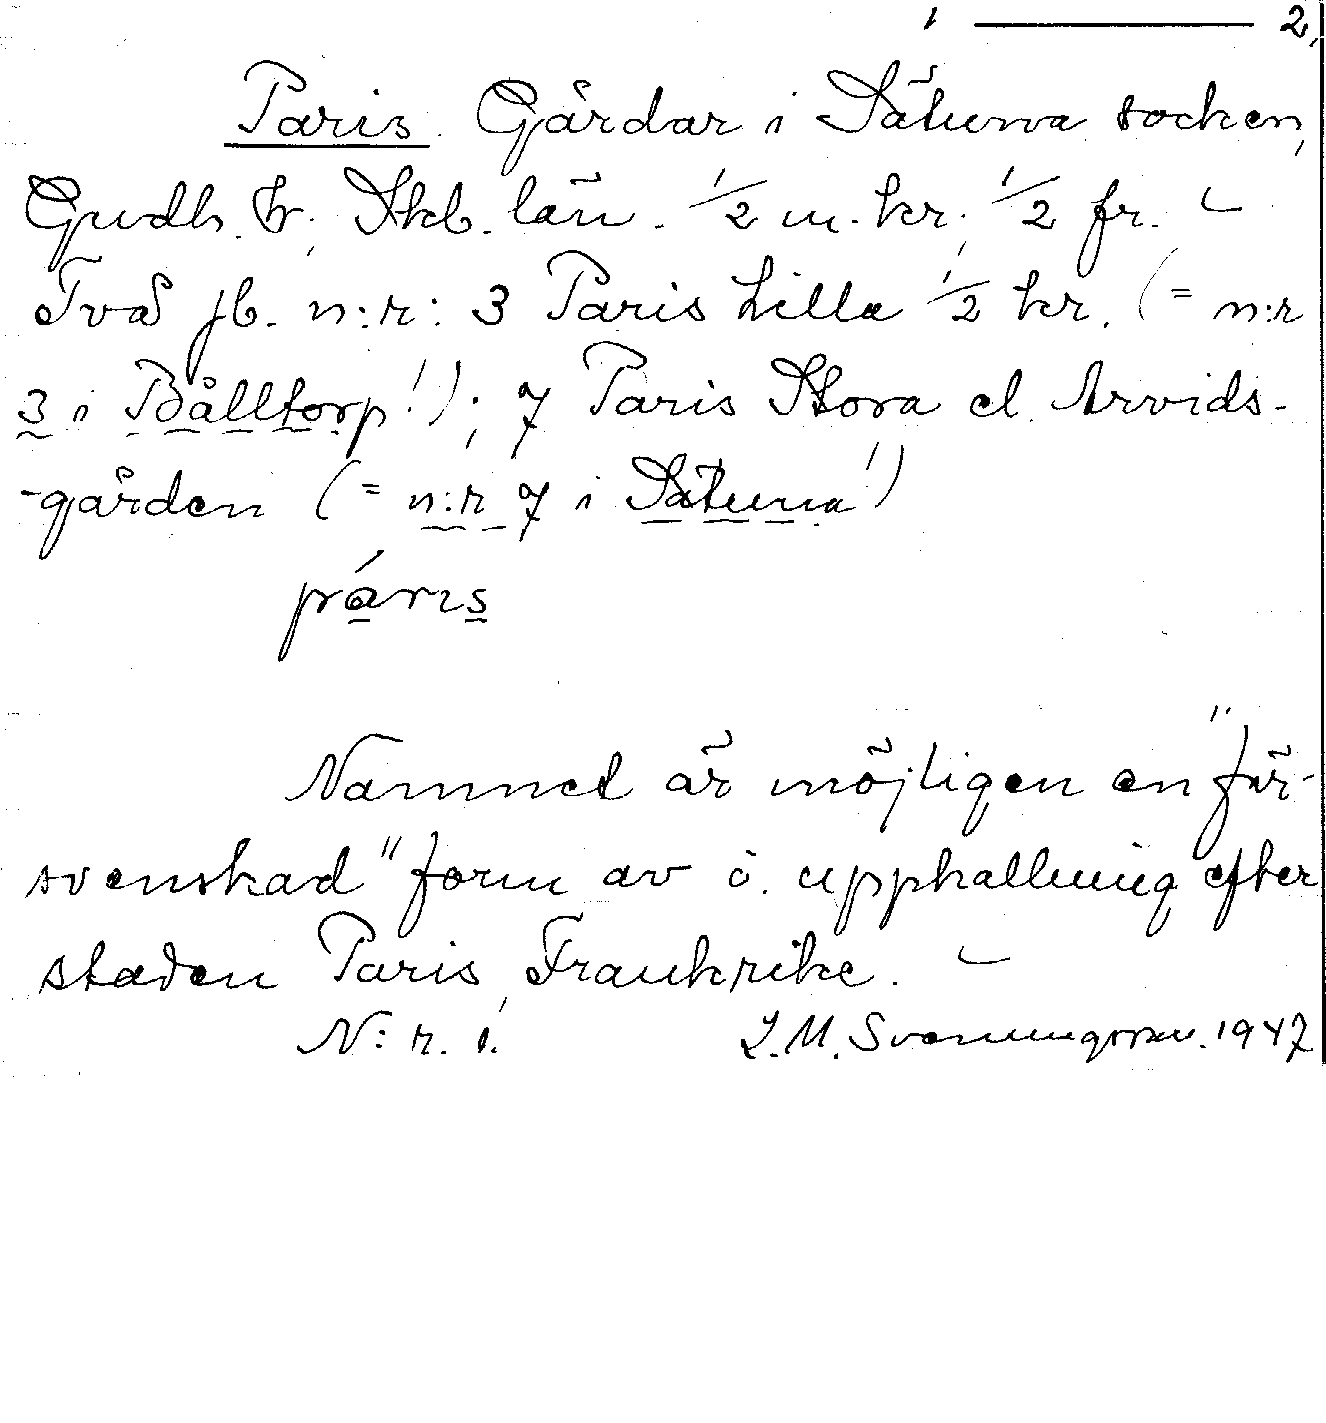 1 ——— 2.
Paris. Gårdar i Sätuna socken,
Gudh. hr, Skb. län. 1/2 m. kr, 1/2 fr. –
Två jb. n:r: 3 Paris Lilla 1/2 kr. (= n:r
3 i Bålltorp!); 7 Paris Stora el. Arvids-
-gården (= n:r 7 i Sätuna!)
páris
Namnet är möjligen en "för-
svenskad" form av o. uppkallning efter
staden Paris, Frankrike. –
N:r. 1. I. M. Svenungsson. 1947